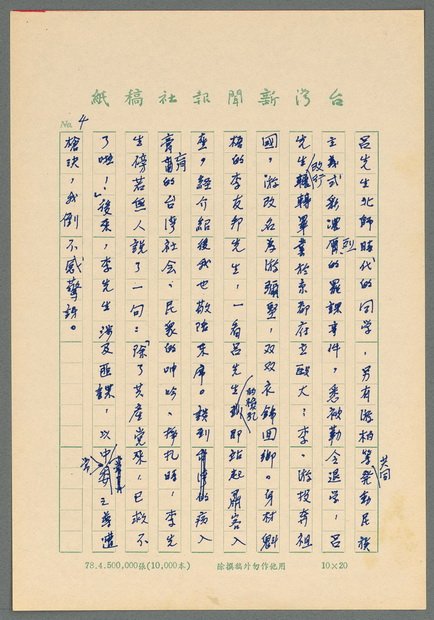 台灣新聞報社稿紙
No. 4
呂先生北師時代的同學,另有游柏等共同發起民族
主義式新課罷課事件,悉被勒令退學,呂
先生改行轉畢業於京都府立醫大;李、游投奔祖
國,游改名為游彌堅,双双衣錦回鄉。身材魁
梧的李友邦先生,一看呂先生即站起肅客入
座,經介紹後我也敬陪末席。談到病入
膏肓的台灣社会、民衆的呻吟、掙扎時,李先
生傍若無人說了一句:「除了共產党來,已救不
了啦!」後來,李先生涉及匪諜,以中常委之尊遭
槍決,我倒不感驚訝。
78.4.500,000張(10,000本)
除撰稿外勿作他用
10×20